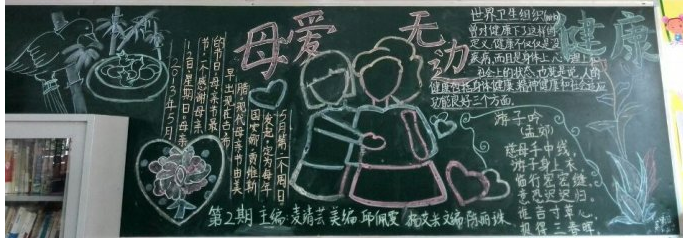 母爱无边
健康
世界卫生组织(WHO)
曾对健康下了这样的
定义,健康不仅仅是没
疾病,而且是身体上、心理上和
社会上的状态,也就是说,人的
健康包括身体健康、精神健康和社会适应
功能良好三个方面。
2013年5月
12日星期日,母亲
节,一个感谢母亲
的节日,母亲节最
早出现在古希
腊,现代母亲节由美
国安娜·贾维斯
发起,定为每年
5月第二个周日
游子吟
(孟郊)
慈母手中线,
游子身上衣
临行密密缝
意恐迟迟归。
谁言寸草心,
报得三春晖
第2期 主编:麦靖芸 美编:邱佩雯 文编:陈丽珠